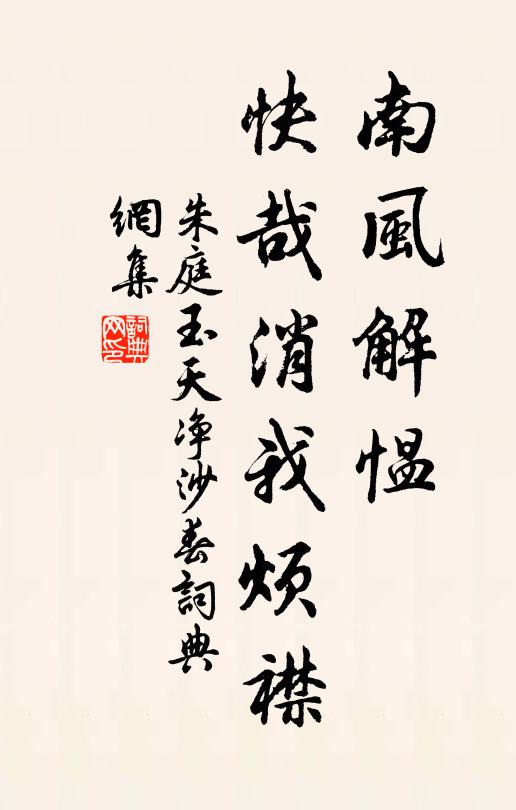 南風解愠
快哉消我煩襟
朱庭玉天净沙春詞典
網集
詞典
网印